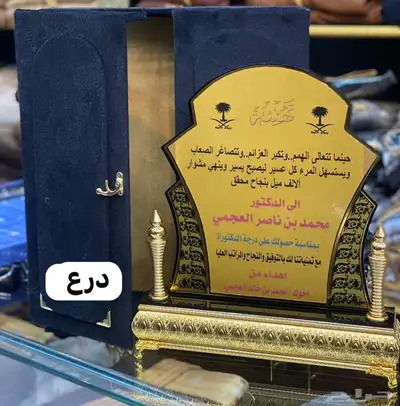 تهنئة
حينما تتعالى الهمم..وتكبر العزائم..وتتصاغر الصعاب
ويستسهل المرء كل عسير ليصبح يسير وينهي مشوار
الالف ميل بنجاح محقق
الى الدكتور
محمد بن ناصر العجمي
بمناسبة حصولك على درجة الدكتوراة
مع تمنياتنا لك بالتوفيق والنجاح والمراتب العليا
اهداء من
اخوك : محمد بن خالد العجمي
درع
حراج